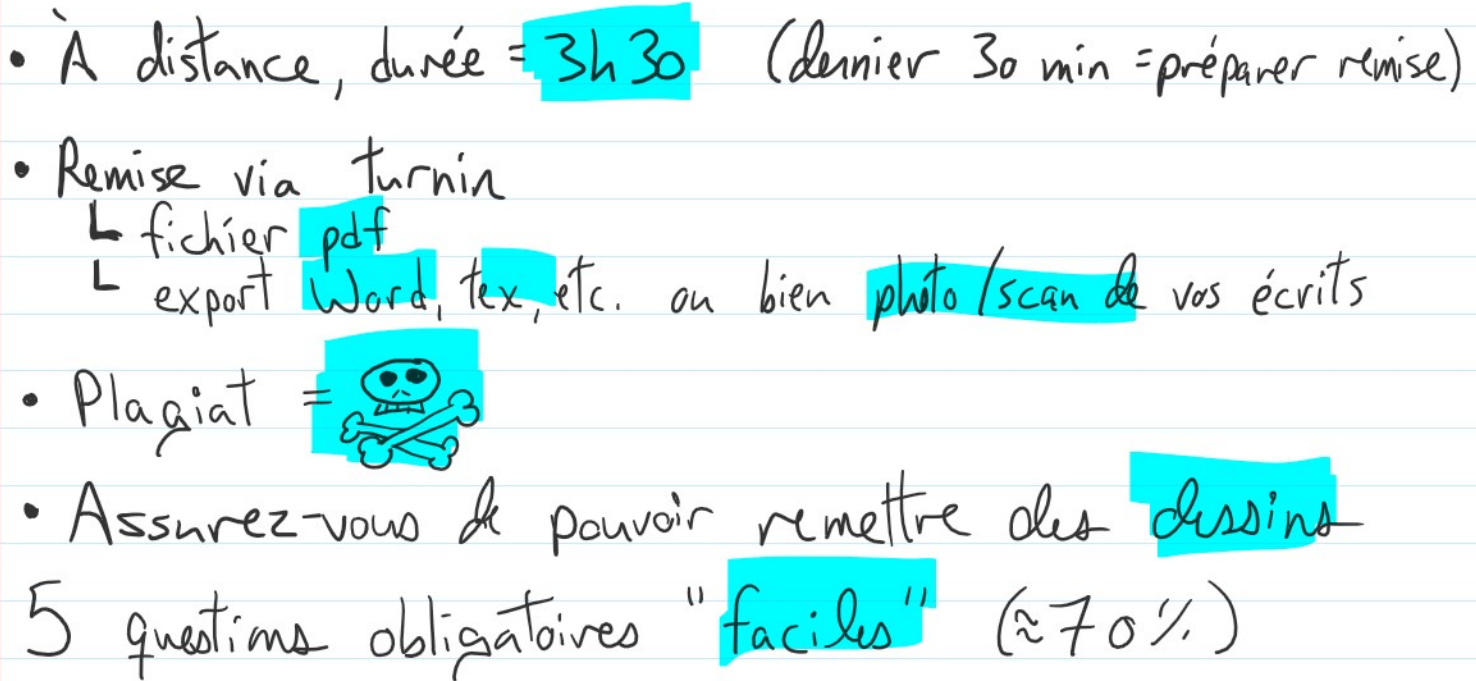 • À distance, durée = 3h30 (dernier 30 min = préparer remise)
• Remise via turnin
┗ fichier pdf
┗ export Word, tex, etc. ou bien photo/scan de vos écrits
• Plagiat =
• Assurez-vous de pouvoir remettre des dessins
5 questions obligatoires "faciles" (≈70%)